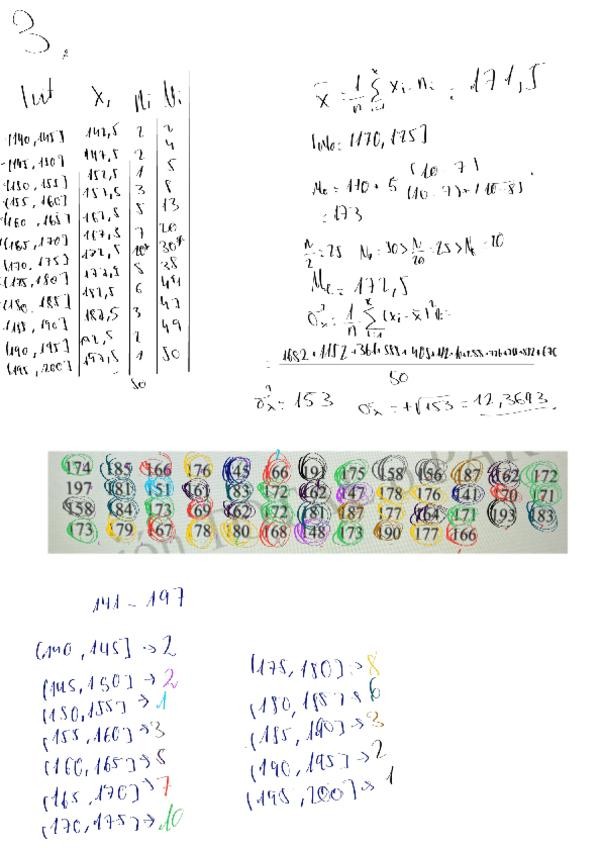 3.
Int xi ni Ni
[140,145] 142,5 2 2
(145,150] 147,5 2 4
(150,155] 152,5 1 5
(155,160] 157,5 3 8
(160,165] 162,5 5 13
(165,170] 167,5 7 20
(170,175] 172,5 10* 30*
(175,180] 177,5 8 38
(180,185] 182,5 6 44
(185,190] 187,5 3 47
(190,195] 192,5 2 49
(195,200] 197,5 1 50
50
x̄ = 1/n Σ xi·ni = 171,5
IMo = [170,175]
Mo = 170 + 5 (10-7) / (10-7)+(10-8)
= 173
n/2 = 25
Me = 172,5
σx² = 1/n Σ (xi - x̄)² ni =
50
σx² = 153 σx = +√153 = 12,3693
174 185 166 176 145 166 191 175 158 156 187 162 172
197 181 151 161 183 172 162 147 178 176 141 170 171
158 184 173 169 162 172 181 187 177 164 171 193 183
173 179 167 178 180 168 148 173 190 177 166
141 - 197
[140,145] → 2
(145,150] → 2
(150,155] → 1
(155,160] → 3
(160,165] → 5
(165,170] → 7
(170,175] → 10
(175,180] → 8
(180,185] → 6
(185,190] → 3
(190,195] → 2
(195,200] → 1